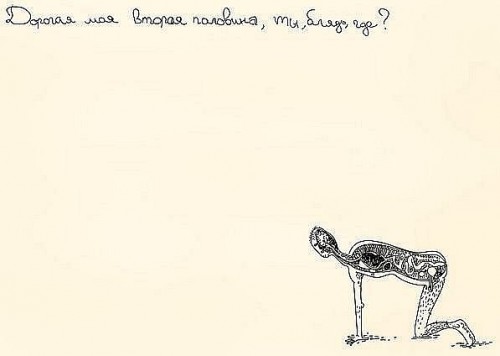 Дорогая моя вторая половина, ты, блядь, где?